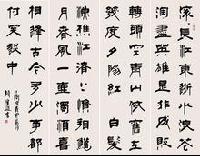 滾滾長江東逝水浪花
淘盡英雄是非成敗
轉頭空青山依舊在
幾度夕陽紅白髮
漁樵江渚上慣看秋
月春風一壺濁酒喜
相逢古今多少事都
付笑談中